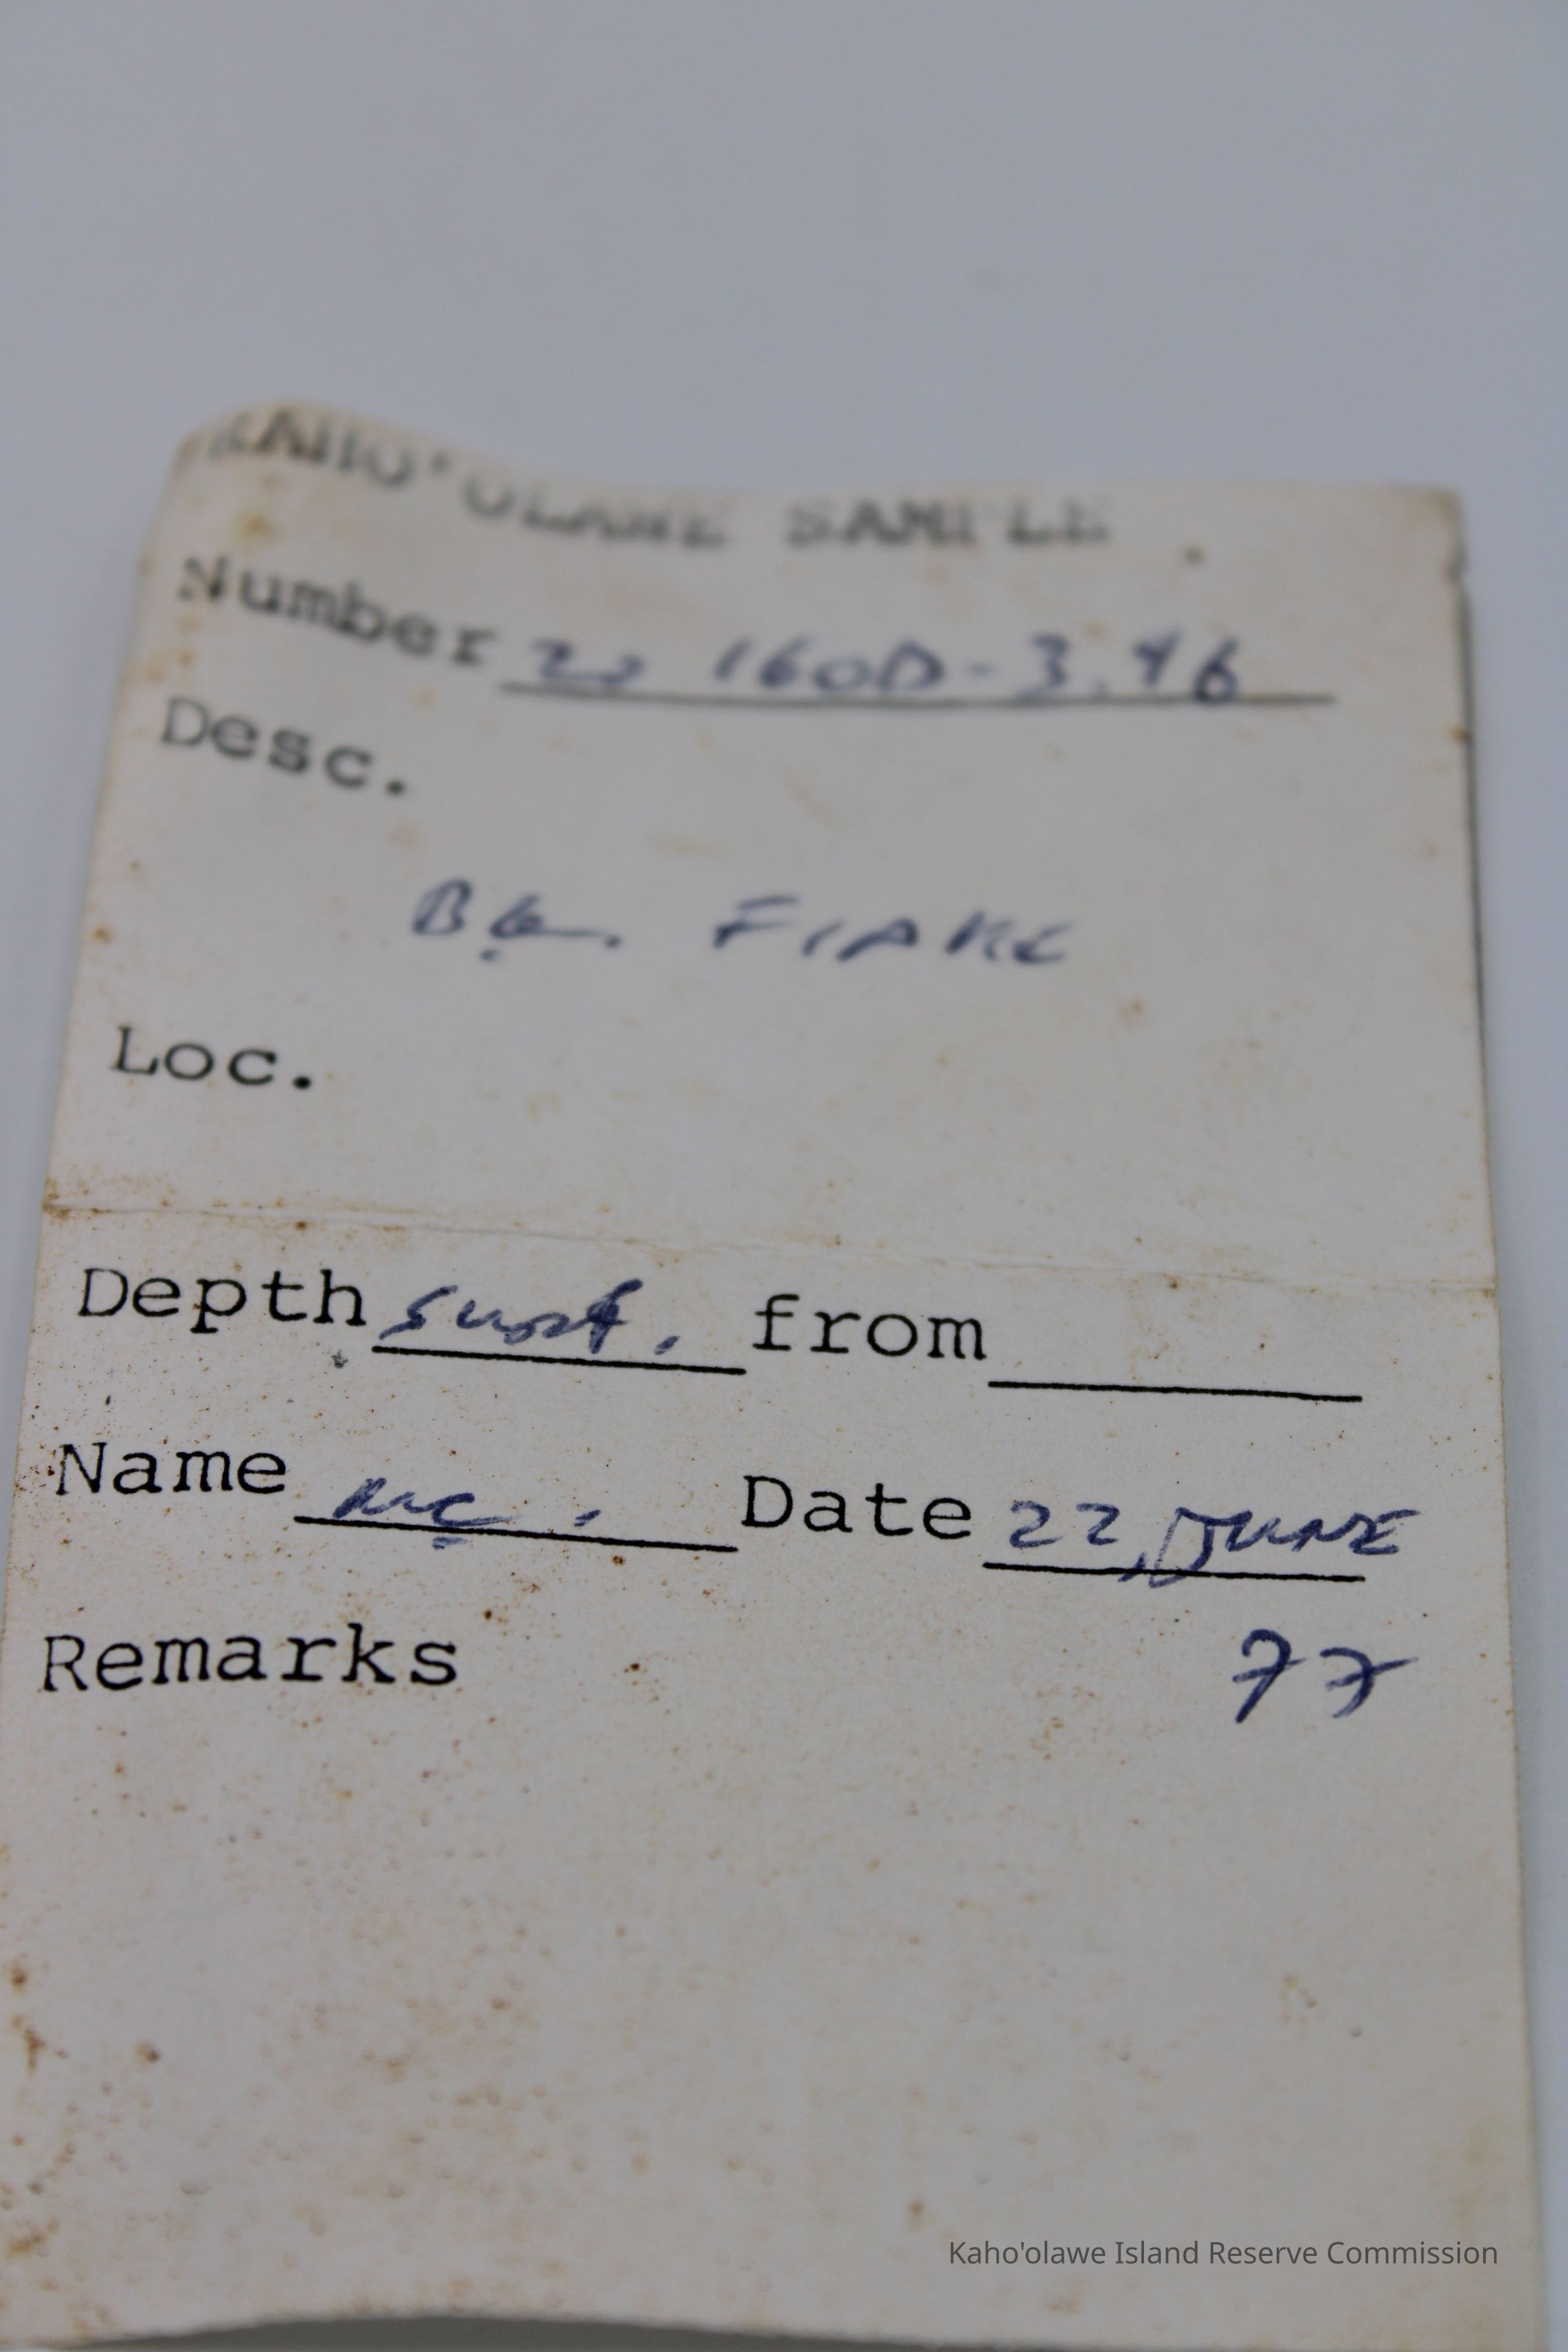 KAHO'OLAWE SAMPLE
Number 20 160D-3.46
Desc.
FLAKE
Loc.
Depth surf. from
Name Date 22, JUNE
Remarks 77
Kaho'olawe Island Reserve Commission